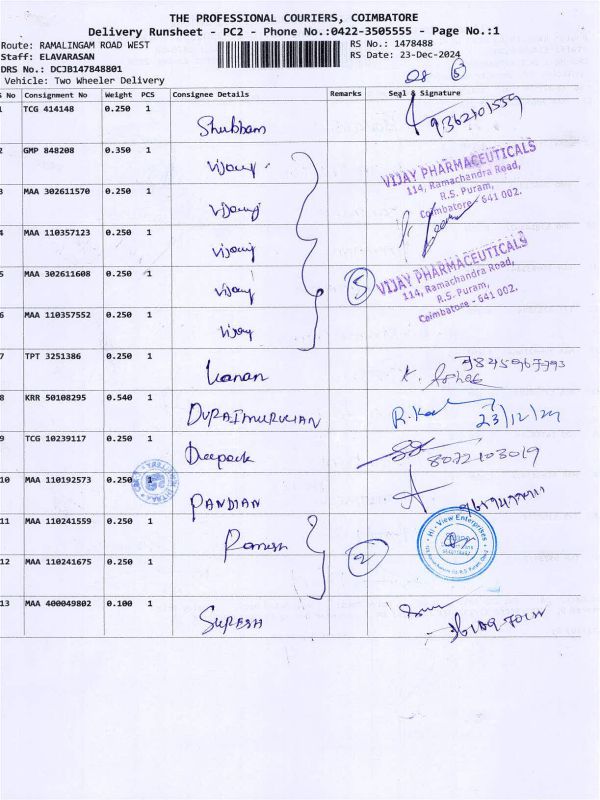 THE PROFESSIONAL COURIERS, COIMBATORE
Delivery Runsheet - PC2 - Phone No.:0422-3505555 - Page No.:1
Route: RAMALINGAM ROAD WEST RS No.: 1478488
Staff: ELAVARASAN RS Date: 23-Dec-2024
DRS No.: DCJB147848801
Vehicle: Two Wheeler Delivery
08 5
S No Consignment No Weight PCS Consignee Details Remarks Seal & Signature
1 TCG 414148 0.250 1 Shubham 9362101559
2 GMP 848208 0.350 1 Vijay
VIJAY PHARMACEUTICALS
114, Ramachandra Road,
R.S. Puram,
Coimbatore - 641 002.
3 MAA 302611570 0.250 1 Vijay
4 MAA 110357123 0.250 1 Vijay
5 MAA 302611608 0.250 1 Vijay 5
VIJAY PHARMACEUTICALS
114, Ramachandra Road,
R.S. Puram,
Coimbatore - 641 002.
6 MAA 110357552 0.250 1 Vijay
7 TPT 3251386 0.250 1 Kanan K. Ashok
8 KRR 50108295 0.540 1 DURAIMURUGAN 23/12/24
9 TCG 10239117 0.250 1 Deepack 8072103019
10 MAA 110192573 0.250 1 PANDIAN
11 MAA 110241559 0.250 1 Ramesh 2
Hi-View Enterprises
12 MAA 110241675 0.250 1
13 MAA 400049802 0.100 1 SURESH